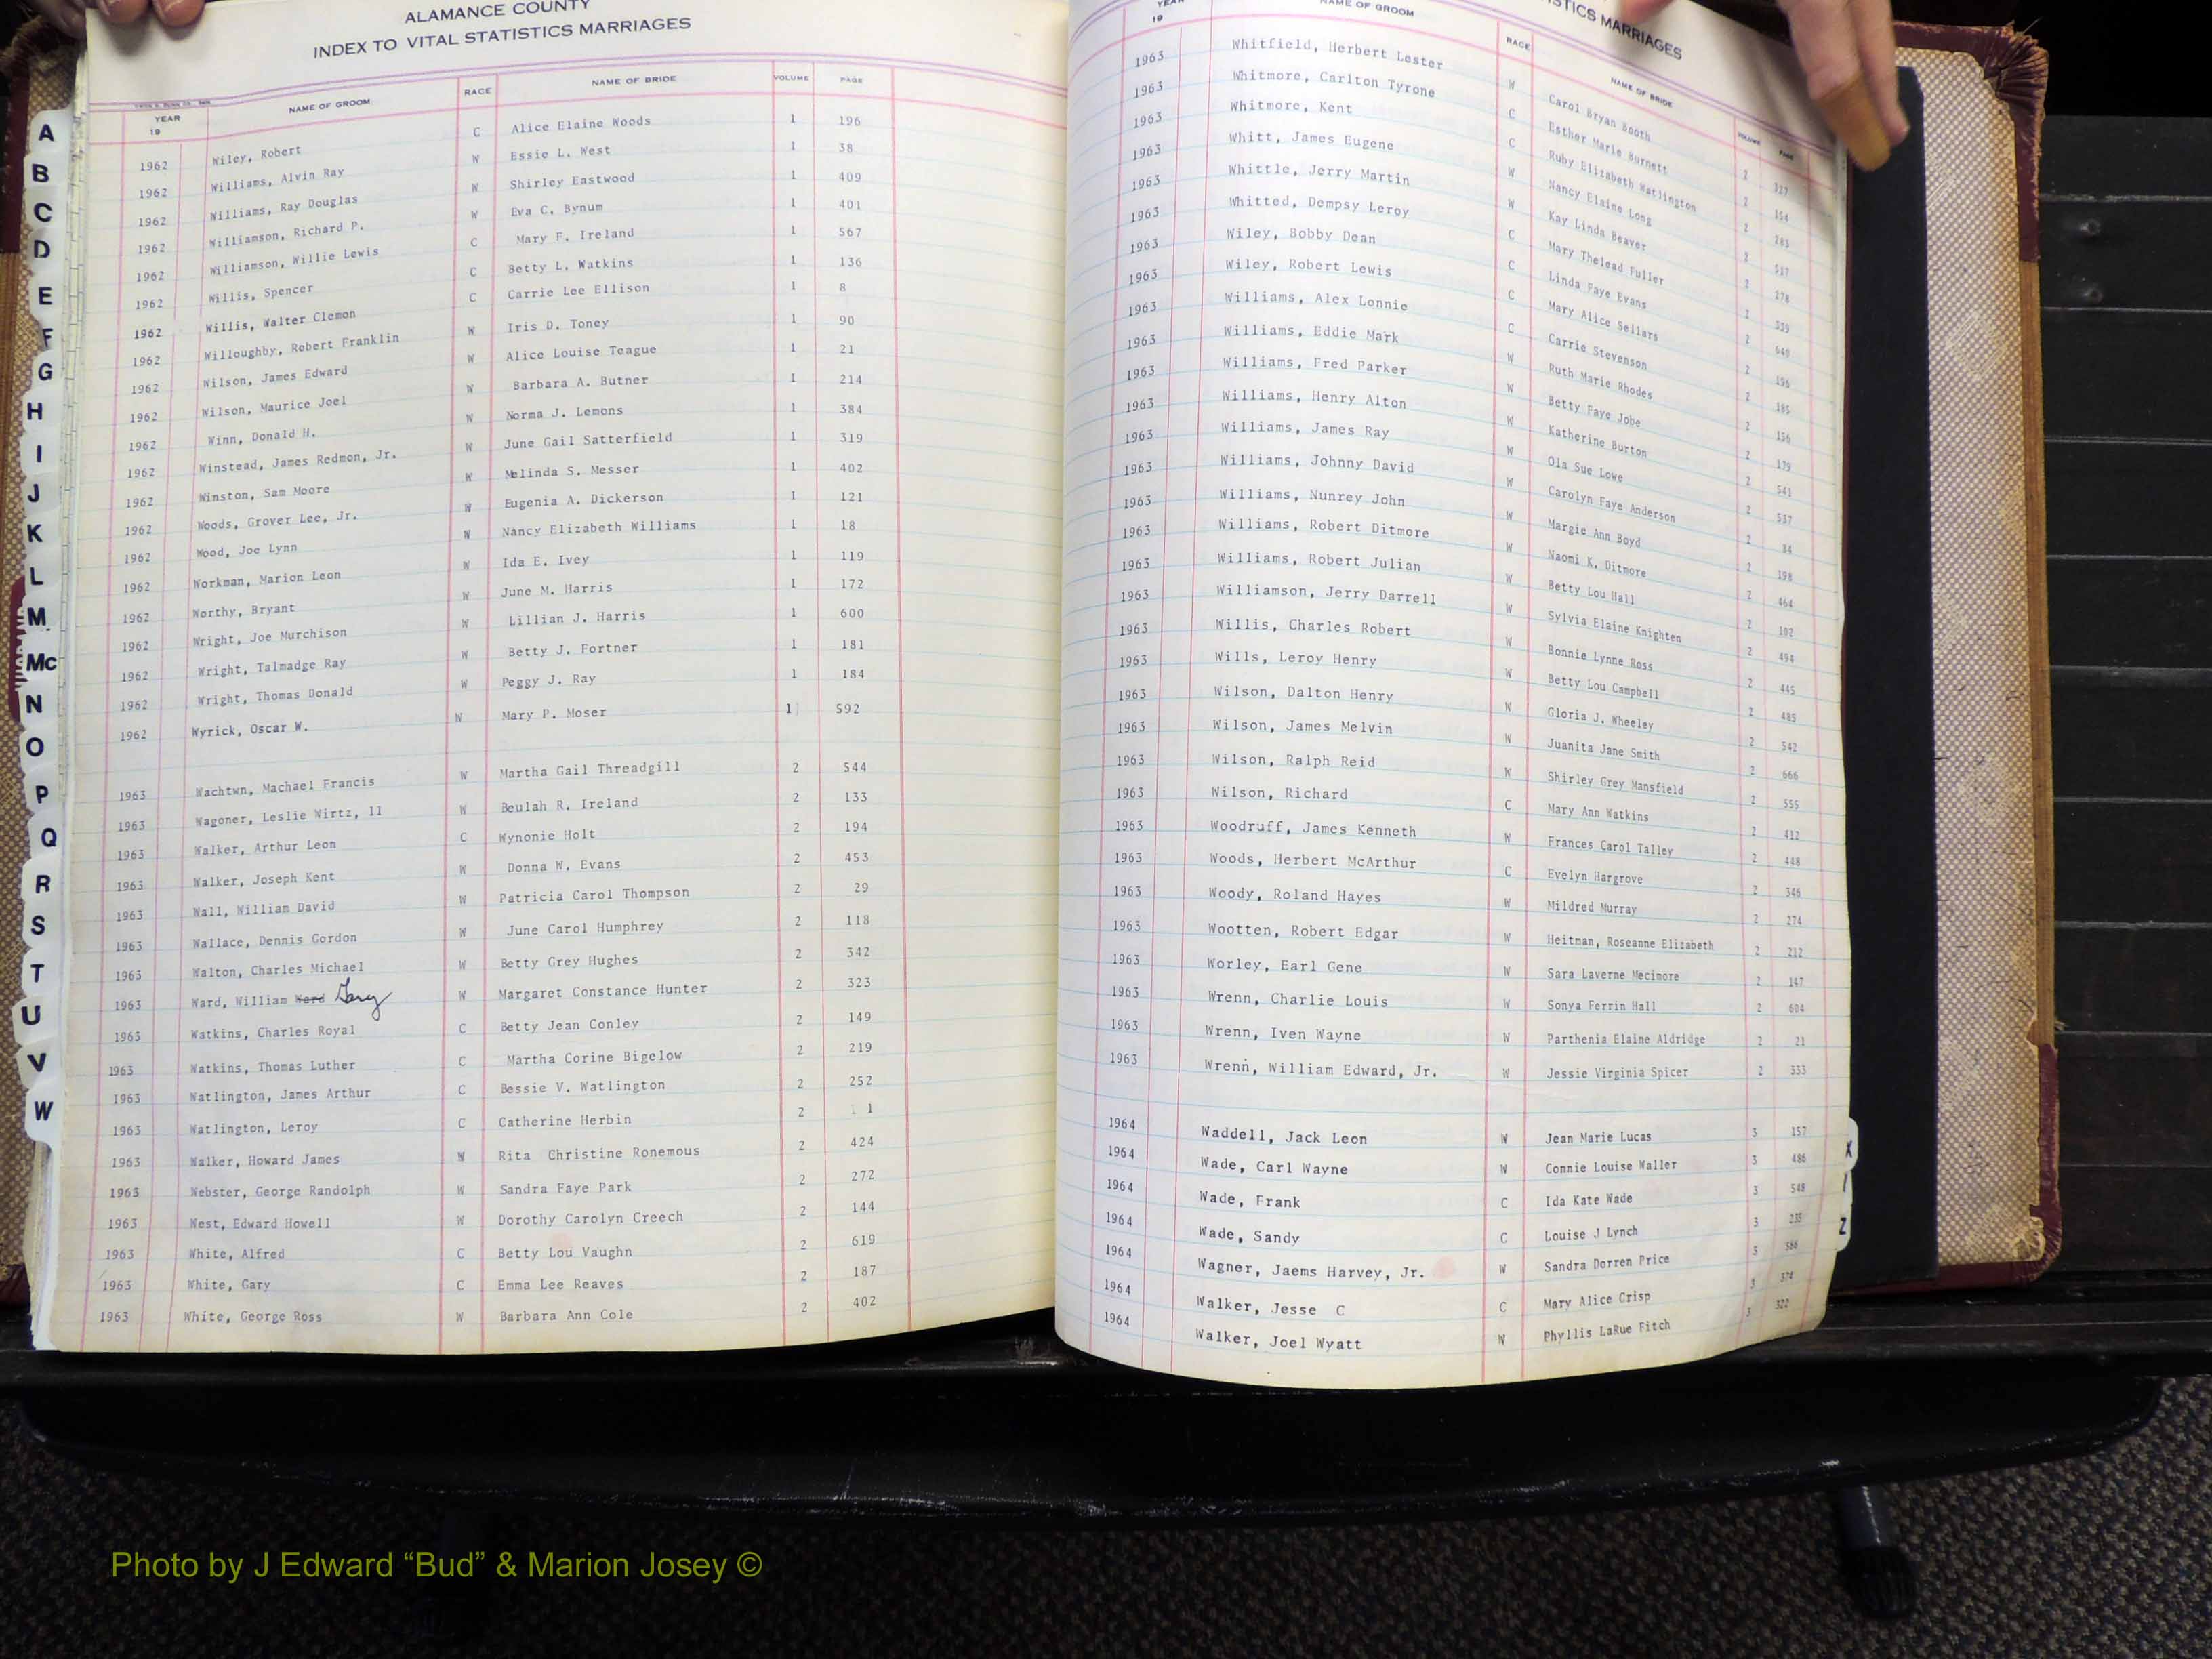 ALAMANCE COUNTY
INDEX TO VITAL STATISTICS MARRIAGES
YEAR 19 NAME OF GROOM RACE NAME OF BRIDE VOLUME PAGE
1962 Wiley, Robert C Alice Elaine Woods 1 196
1962 Williams, Alvin Ray W Essie L. West 1 38
1962 Williams, Ray Douglas W Shirley Eastwood 1 409
1962 Williamson, Richard P. W Eva C. Bynum 1 401
1962 Williamson, Willie Lewis C Mary F. Ireland 1 567
1962 Willis, Spencer C Betty L. Watkins 1 136
1962 Willis, Walter Clemon C Carrie Lee Ellison 1 8
1962 Willoughby, Robert Franklin W Iris D. Toney 1 90
1962 Wilson, James Edward W Alice Louise Teague 1 21
1962 Wilson, Maurice Joel W Barbara A. Butner 1 214
1962 Winn, Donald H. W Norma J. Lemons 1 384
1962 Winstead, James Redmon, Jr. W June Gail Satterfield 1 319
1962 Winston, Sam Moore W Melinda S. Messer 1 402
1962 Woods, Grover Lee, Jr. W Eugenia A. Dickerson 1 121
1962 Wood, Joe Lynn W Nancy Elizabeth Williams 1 18
1962 Workman, Marion Leon W Ida E. Ivey 1 119
1962 Worthy, Bryant W June M. Harris 1 172
1962 Wright, Joe Murchison W Lillian J. Harris 1 600
1962 Wright, Talmadge Ray W Betty J. Fortner 1 181
1962 Wright, Thomas Donald W Peggy J. Ray 1 184
1962 Wyrick, Oscar W. W Mary P. Moser 1 592
1963 Wachtwn, Machael Francis W Martha Gail Threadgill 2 544
1963 Wagoner, Leslie Wirtz, 11 W Beulah R. Ireland 2 133
1963 Walker, Arthur Leon C Wynonie Holt 2 194
1963 Walker, Joseph Kent W Donna W. Evans 2 453
1963 Wall, William David W Patricia Carol Thompson 2 29
1963 Wallace, Dennis Gordon W June Carol Humphrey 2 118
1963 Walton, Charles Michael W Betty Grey Hughes 2 342
1963 Ward, William Ward Gary W Margaret Constance Hunter 2 323
1963 Watkins, Charles Royal C Betty Jean Conley 2 149
1963 Watkins, Thomas Luther C Martha Corine Bigelow 2 219
1963 Watlington, James Arthur C Bessie V. Watlington 2 252
1963 Watlington, Leroy C Catherine Herbin 2 1
1963 Walker, Howard James W Rita Christine Ronemous 2 424
1963 Webster, George Randolph W Sandra Faye Park 2 272
1963 West, Edward Howell W Dorothy Carolyn Creech 2 144
1963 White, Alfred C Betty Lou Vaughn 2 619
1963 White, Gary C Emma Lee Reaves 2 187
1963 White, George Ross W Barbara Ann Cole 2 402
A
B
C
D
E
F
G
H
I
J
K
L
M
Mc
N
O
P
Q
R
S
T
U
V
W
STICS MARRIAGES
YEAR 19 NAME OF GROOM RACE NAME OF BRIDE VOLUME PAGE
1963 Whitfield, Herbert Lester W Carol Bryan Booth 2 527
1963 Whitmore, Carlton Tyrone C Esther Marie Burnett 2 154
1963 Whitmore, Kent C Ruby Elizabeth Watlington 2 283
1963 Whitt, James Eugene W Nancy Elaine Long 2 517
1963 Whittle, Jerry Martin W Kay Linda Beaver 2 278
1963 Whitted, Dempsy Leroy C Mary Thelead Fuller 2 359
1963 Wiley, Bobby Dean C Linda Faye Evans 2 640
1963 Wiley, Robert Lewis C Mary Alice Sellars 2 196
1963 Williams, Alex Lonnie C Carrie Stevenson 2 185
1963 Williams, Eddie Mark W Ruth Marie Rhodes 2 156
1963 Williams, Fred Parker W Betty Faye Jobe 2 179
1963 Williams, Henry Alton W Katherine Burton 2 541
1963 Williams, James Ray W Ola Sue Lowe 2 537
1963 Williams, Johnny David W Carolyn Faye Anderson 2 84
1963 Williams, Nunrey John W Margie Ann Boyd 2 198
1963 Williams, Robert Ditmore W Naomi K. Ditmore 2 464
1963 Williams, Robert Julian W Betty Lou Hall 2 102
1963 Williamson, Jerry Darrell W Sylvia Elaine Knighten 2 494
1963 Willis, Charles Robert W Bonnie Lynne Ross 2 445
1963 Wills, Leroy Henry W Betty Lou Campbell 2 485
1963 Wilson, Dalton Henry W Gloria J. Wheeley 2 542
1963 Wilson, James Melvin W Juanita Jane Smith 2 666
1963 Wilson, Ralph Reid W Shirley Grey Mansfield 2 555
1963 Wilson, Richard C Mary Ann Watkins 2 412
1963 Woodruff, James Kenneth W Frances Carol Talley 2 448
1963 Woods, Herbert McArthur C Evelyn Hargrove 2 346
1963 Woody, Roland Hayes W Mildred Murray 2 274
1963 Wootten, Robert Edgar W Heitman, Roseanne Elizabeth 2 212
1963 Worley, Earl Gene W Sara Laverne Mecimore 2 147
1963 Wrenn, Charlie Louis W Sonya Ferrin Hall 2 604
1963 Wrenn, Iven Wayne W Parthenia Elaine Aldridge 2 21
1963 Wrenn, William Edward, Jr. W Jessie Virginia Spicer 2 333
1964 Waddell, Jack Leon W Jean Marie Lucas 3 157
1964 Wade, Carl Wayne W Connie Louise Waller 3 486
1964 Wade, Frank C Ida Kate Wade 3 548
1964 Wade, Sandy C Louise J Lynch 3 235
1964 Wagner, Jaems Harvey, Jr. W Sandra Dorren Price 3 586
1964 Walker, Jesse C C Mary Alice Crisp 3 374
1964 Walker, Joel Wyatt W Phyllis LaRue Fitch 3 322
X
Z
Photo by J Edward “Bud” & Marion Josey ©